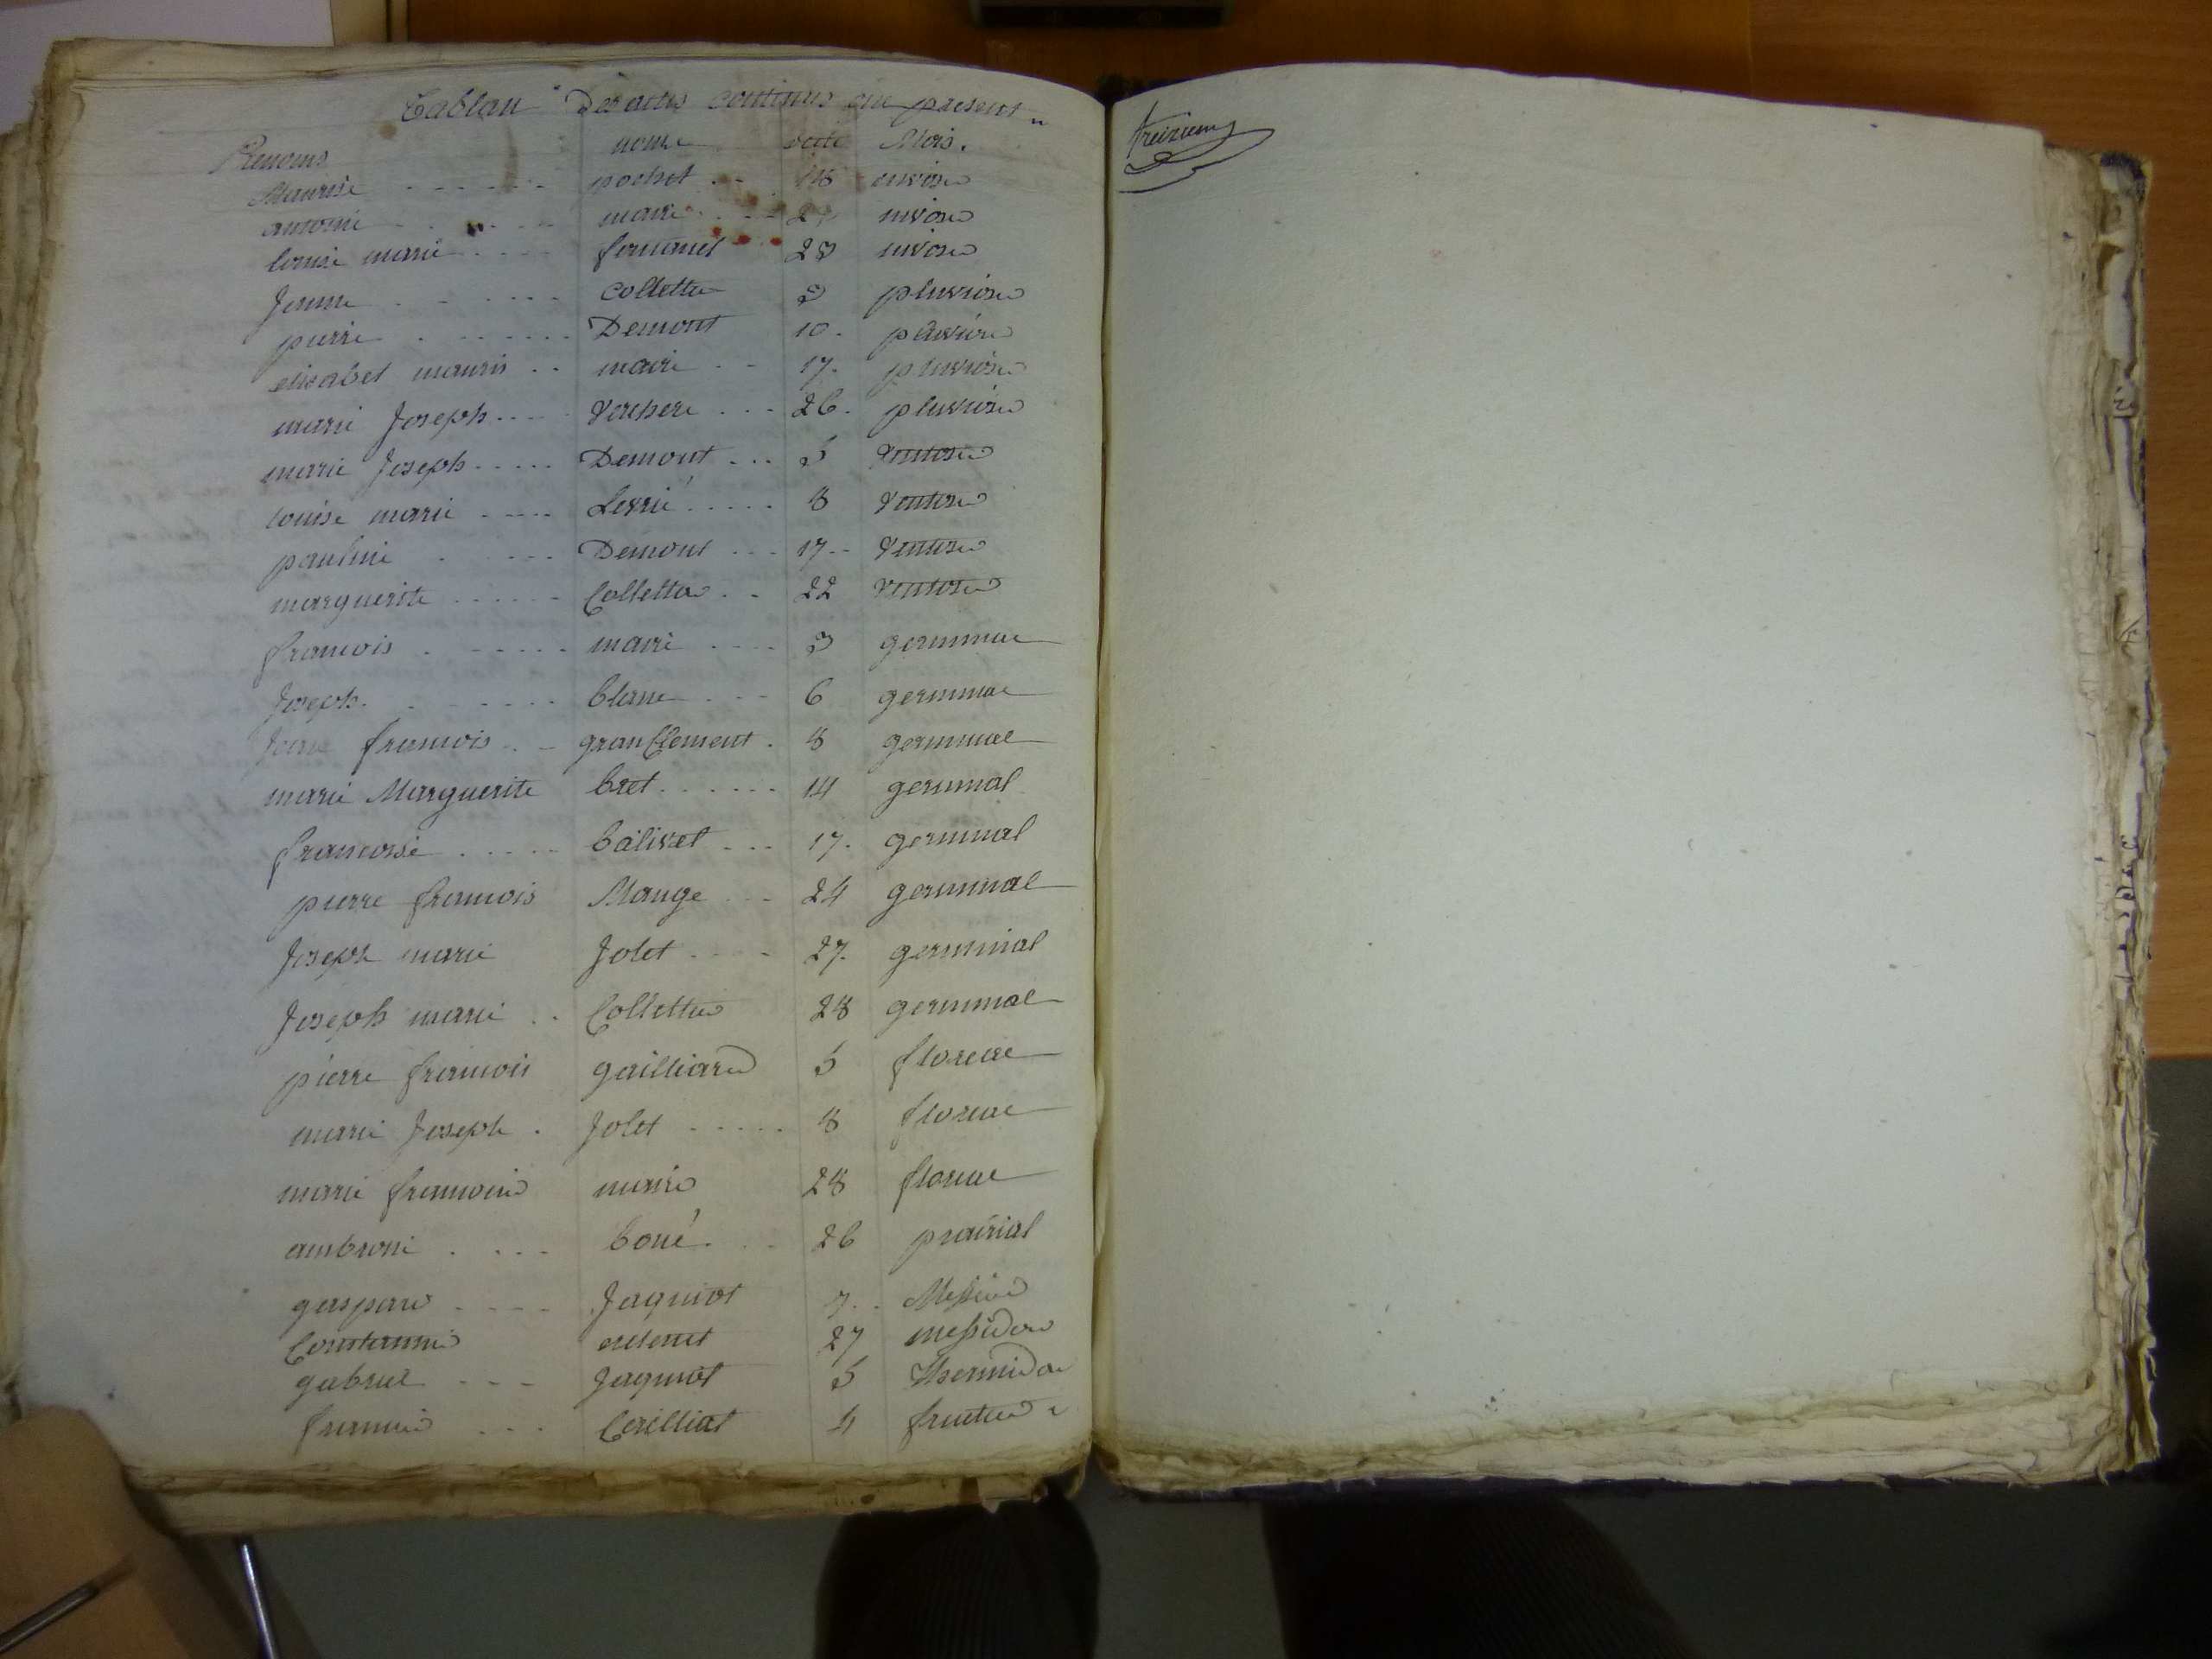 Tablau Des actes contenus au present
Prenoms noms date Mois.
Maurise pochet 18 nivose
antoine maire nivose
louise marie 23 nivose
Jeanne Collette 3 pluviose
pierre Demont 10. pluviose
elisabet mauris maire 17. pluviose
marie Joseph Verchere 26. pluviose
marie Joseph Demont 5 Ventose
louise marie 8 Ventose
pauline Demont 17 Ventose
marguerite Collette 22 Ventose
francois maire 3 germinal
Joseph. blanc 6 germinal
francois granClement 8 germinal
marie Marguerite bret 14 germinal
francoise balivet 17. germinal
pierre francois Mange 24 germinal
Joseph marie Jolet 27. germinal
Joseph marie Collette 28 germinal
pierre francois gailliard 5 floreal
marie Joseph Jolet 8 floreal
marie francoise maire 28 floreal
ambroise boué 26 prairial
gaspard Jaquiot 7 Messidor
27 messidor
gabriel Jaquiot 5 Thermidor
4
treizieme